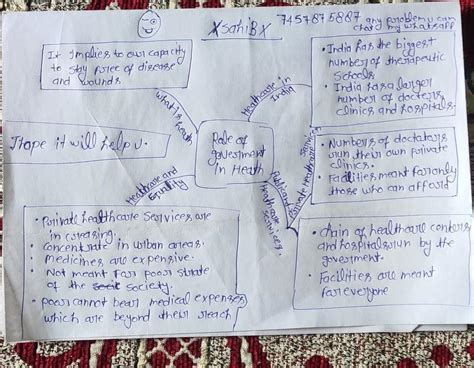 XSahiBX
7457875887 any problem u can
chat g my whatsapp
It implies to our capacity
to stay free of disease
and wounds.
• India has the biggest
number of therapeutic
Schools
• India has a larger
number of doctors
clinics and hospitals.
What is health
Healthcare in
India
I hope it will help u.
Role of
government
in Health
Private healthcare
services
• Numbers of doctaters
run their own private
clinics.
• Facilities meant for only
those who can afford
Healthcare and
Equality
Publicant
Healthcare
Services.
• Private healthcare services are
in creasing.
• Concentrate in urban areas.
• Medicines are expensive.
• Not meant for poor strate
of the society.
• poor cannot bear medical expenses
which are beyond their reach
• Chain of healthcare centers
and hospitals run by the
government.
• Facilities are meant
for everyone